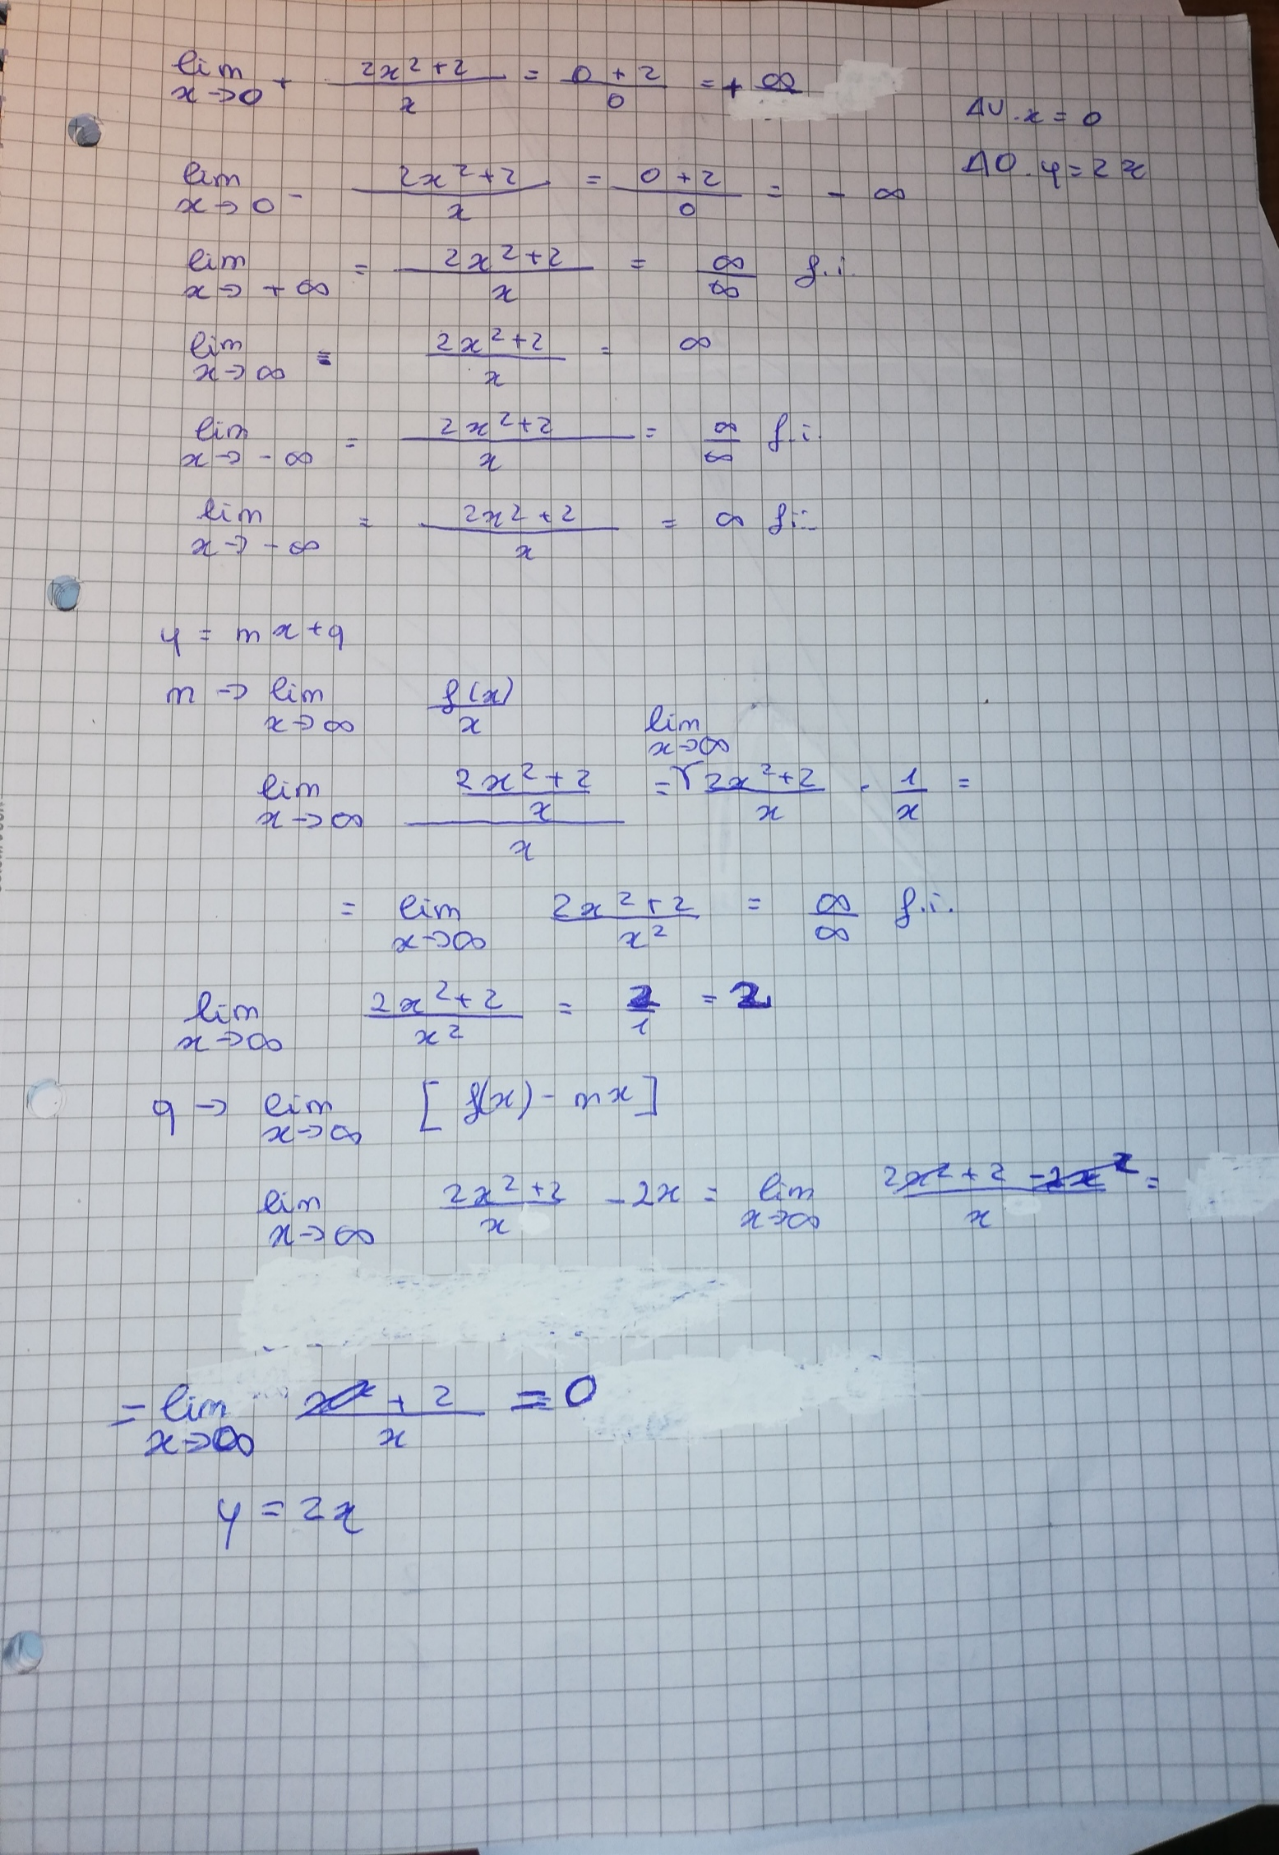 lim x→0⁺ (2x²+2)/x = (0+2)/0 = +∞
AV. x = 0
lim x→0⁻ (2x²+2)/x = (0+2)/0 = -∞
AO. y = 2x
lim x→+∞ = (2x²+2)/x = ∞/∞ f.i.
lim x→∞ = (2x²+2)/x = ∞
lim x→-∞ = (2x²+2)/x = ∞/∞ f.i.
lim x→-∞ = (2x²+2)/x = ∞ f.i.
y = mx+q
m → lim x→∞ f(x)/x
lim x→∞ ((2x²+2)/x)/x = lim x→∞ (2x²+2)/x · 1/x =
= lim x→∞ (2x²+2)/x² = ∞/∞ f.i.
lim x→∞ (2x²+2)/x² = 2/1 = 2
q → lim x→∞ [f(x) - mx]
lim x→∞ (2x²+2)/x - 2x = lim x→∞ (2x²+2-2x²)/x =
= lim x→∞ + 2/x = 0
y = 2x